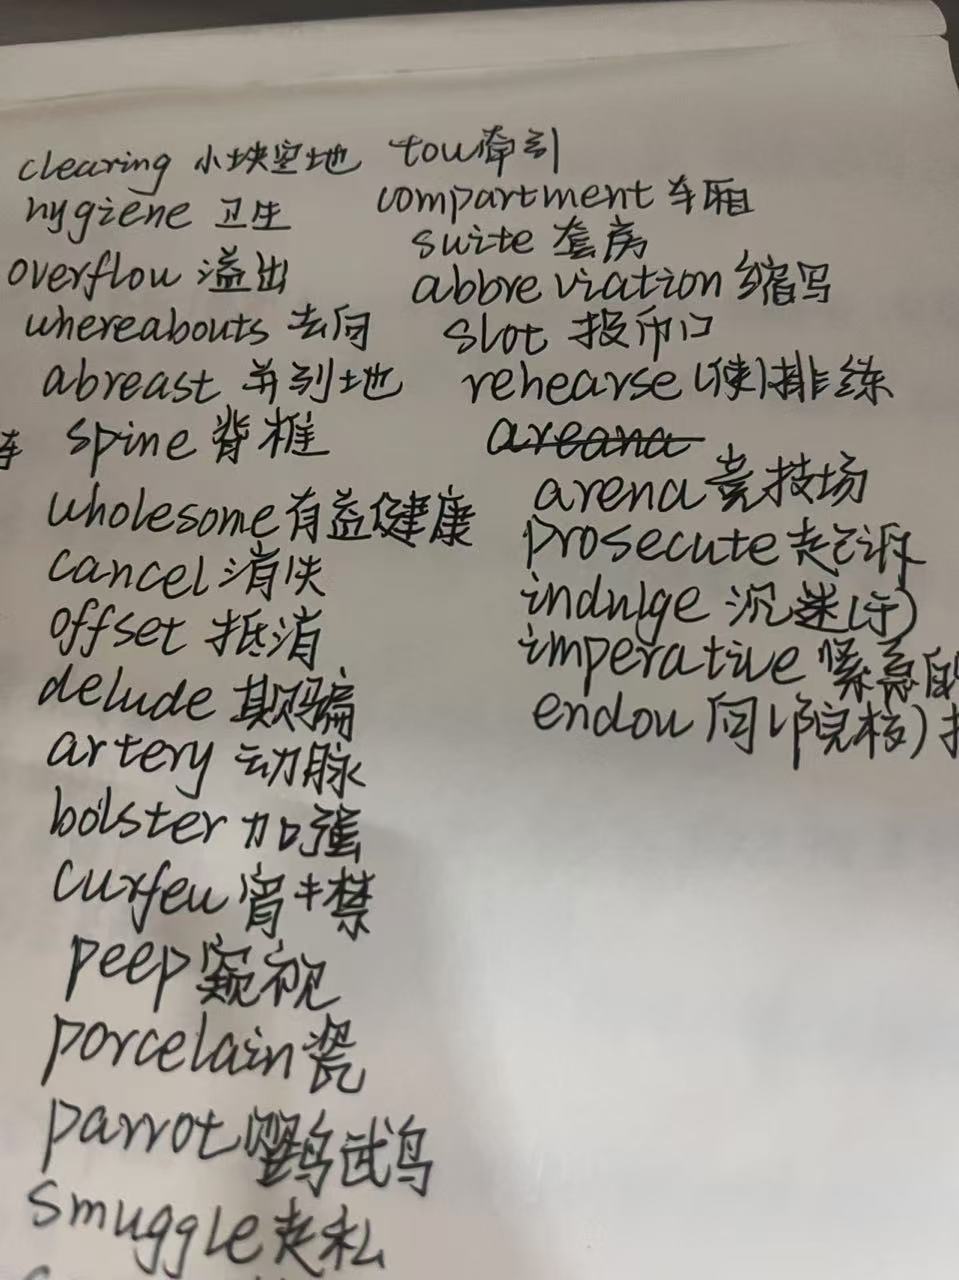 clearing 小块空地
hygiene 卫生
overflow 溢出
whereabouts 去向
abreast 并列地
spine 背椎
wholesome 有益健康
cancel 消失
offset 抵消
delude 欺骗
artery 动脉
bolster 加强
curfew 宵禁
peep 窥视
porcelain 瓷
parrot 鹦鹉
smuggle 走私
tow 牵引
compartment 车厢
suite 套房
abbreviation 缩写
slot 投币口
rehearse (使)排练
areana
arena 竞技场
prosecute 起诉
indulge 沉迷(于)
imperative 紧急的
endow 向(院校)